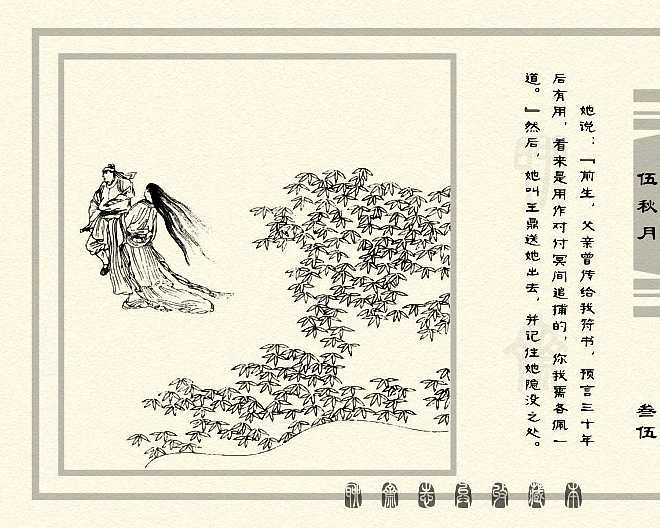 她说：「前生，父亲曾传给我符书，预言三十年
后有用，看来是用作对付冥间追捕的，你我需各佩一
道。」然后，她叫王鼎送她出去，并记住她隐没之处。
伍秋月
叁伍
聊斋志异收藏本